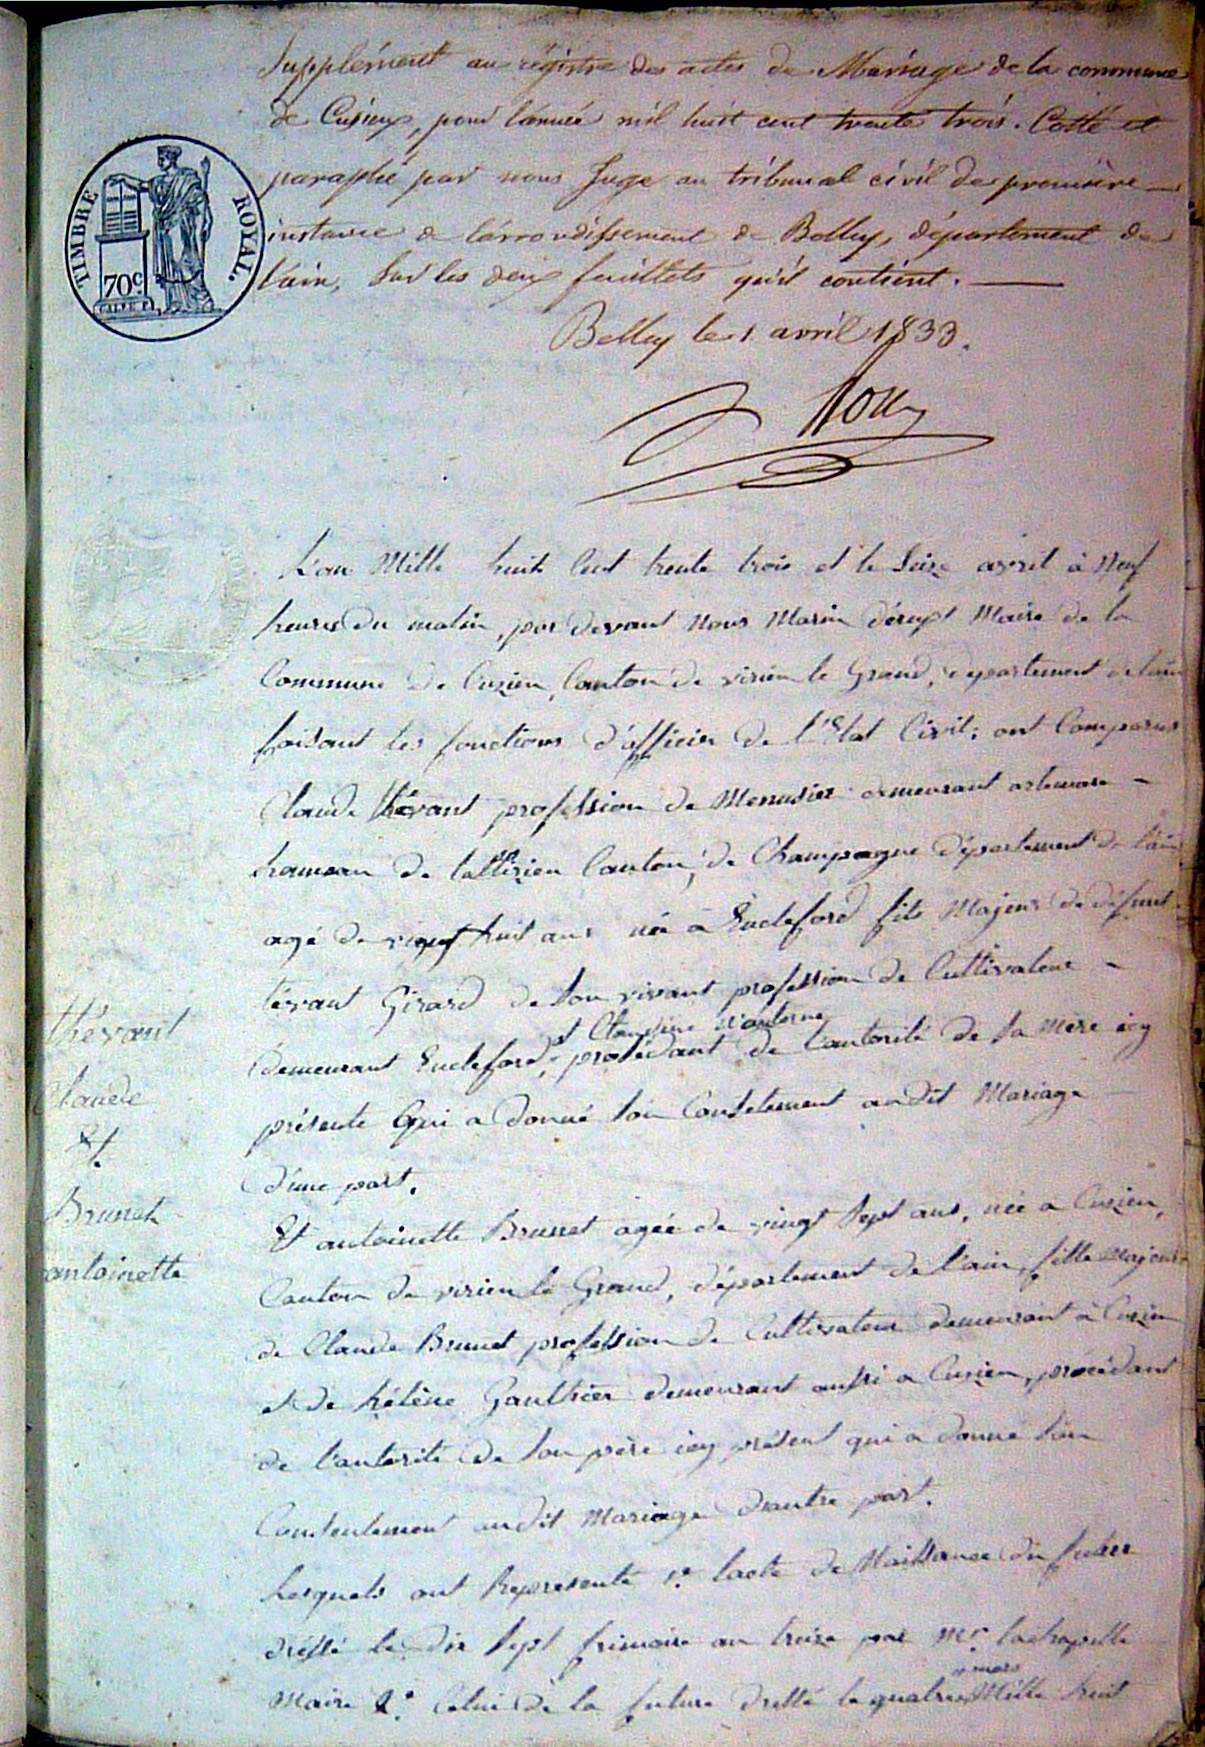 Supplément au régistre des actes de Mariage de la commune
de Cuzieu, pour l'année mil huit cent trente trois. Cotté et
paraphé par nous Juge au tribunal civil de première
instance de l'arrondissement de Belley, département de
l'ain, sur les deux feuillets qu'il contient.
Belley le 1 avril 1833.
TIMBRE ROYAL.
70c
L'an Mille huit Cent trente trois et le Seize avril à Neuf
heures du matin, par devant Nous Marin Maire de la
Commune de Cuzieu, Canton de virieu le Grand, département de l'ain
faisant les fonctions d'officier de l'Etat Civil; ont Comparus
Claude thévant profession de Menusier demeurant artemare
hameau de Canton, de Champagne département de l'ain
agé de vingt huit ans née à fils Majeur de défunt
tévant Girard de son vivant profession de Cultivateur
et Claudine
demeurant procédant de l'autorité de sa Mère icy
présente Qui a donné son Consetement audit Mariage
d'une part.
thévant
Claude
et.
Brunet
antoinette
Et antoinette Brunet agée de vingt Sept ans, née a Cuzieu,
Canton de virieu le Grand, département de l'ain, fille majeure
de Claude Brunet profession de Cultivateur demeurant à Cuzieu
et de hélène Gaulthier demeurant aussi a Cuzieu, procédant
de l'autorité de son père icy présent qui a donné son
Consentement audit Mariage d'autre part.
Lesquels ont Representé 1º l'acte de Naissance du futur
dréssé le dix Sept frimaire an treize par Mr. lachapelle
Maire 2º Celui de la future dressé le quatre mars Mille huit